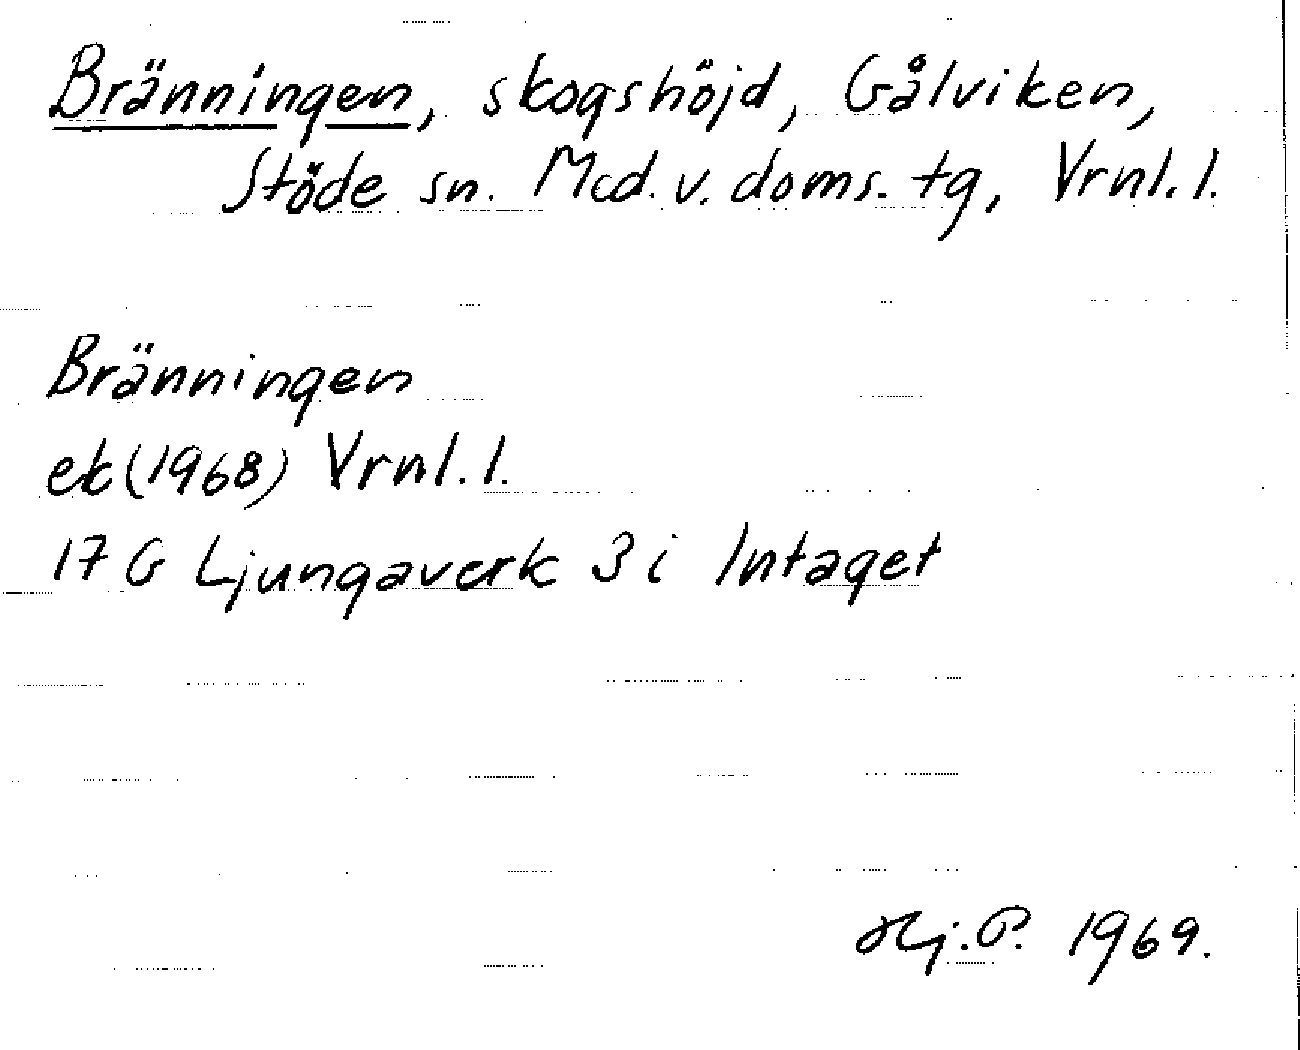 Bränningen, skogshöjd, Gålviken,
Stöde sn. Med. v. doms. tg, Vrnl. l.
Bränningen
ek (1968) Vrnl. l.
17 G Ljungaverk 3 i Intaget
Hj. P. 1969.